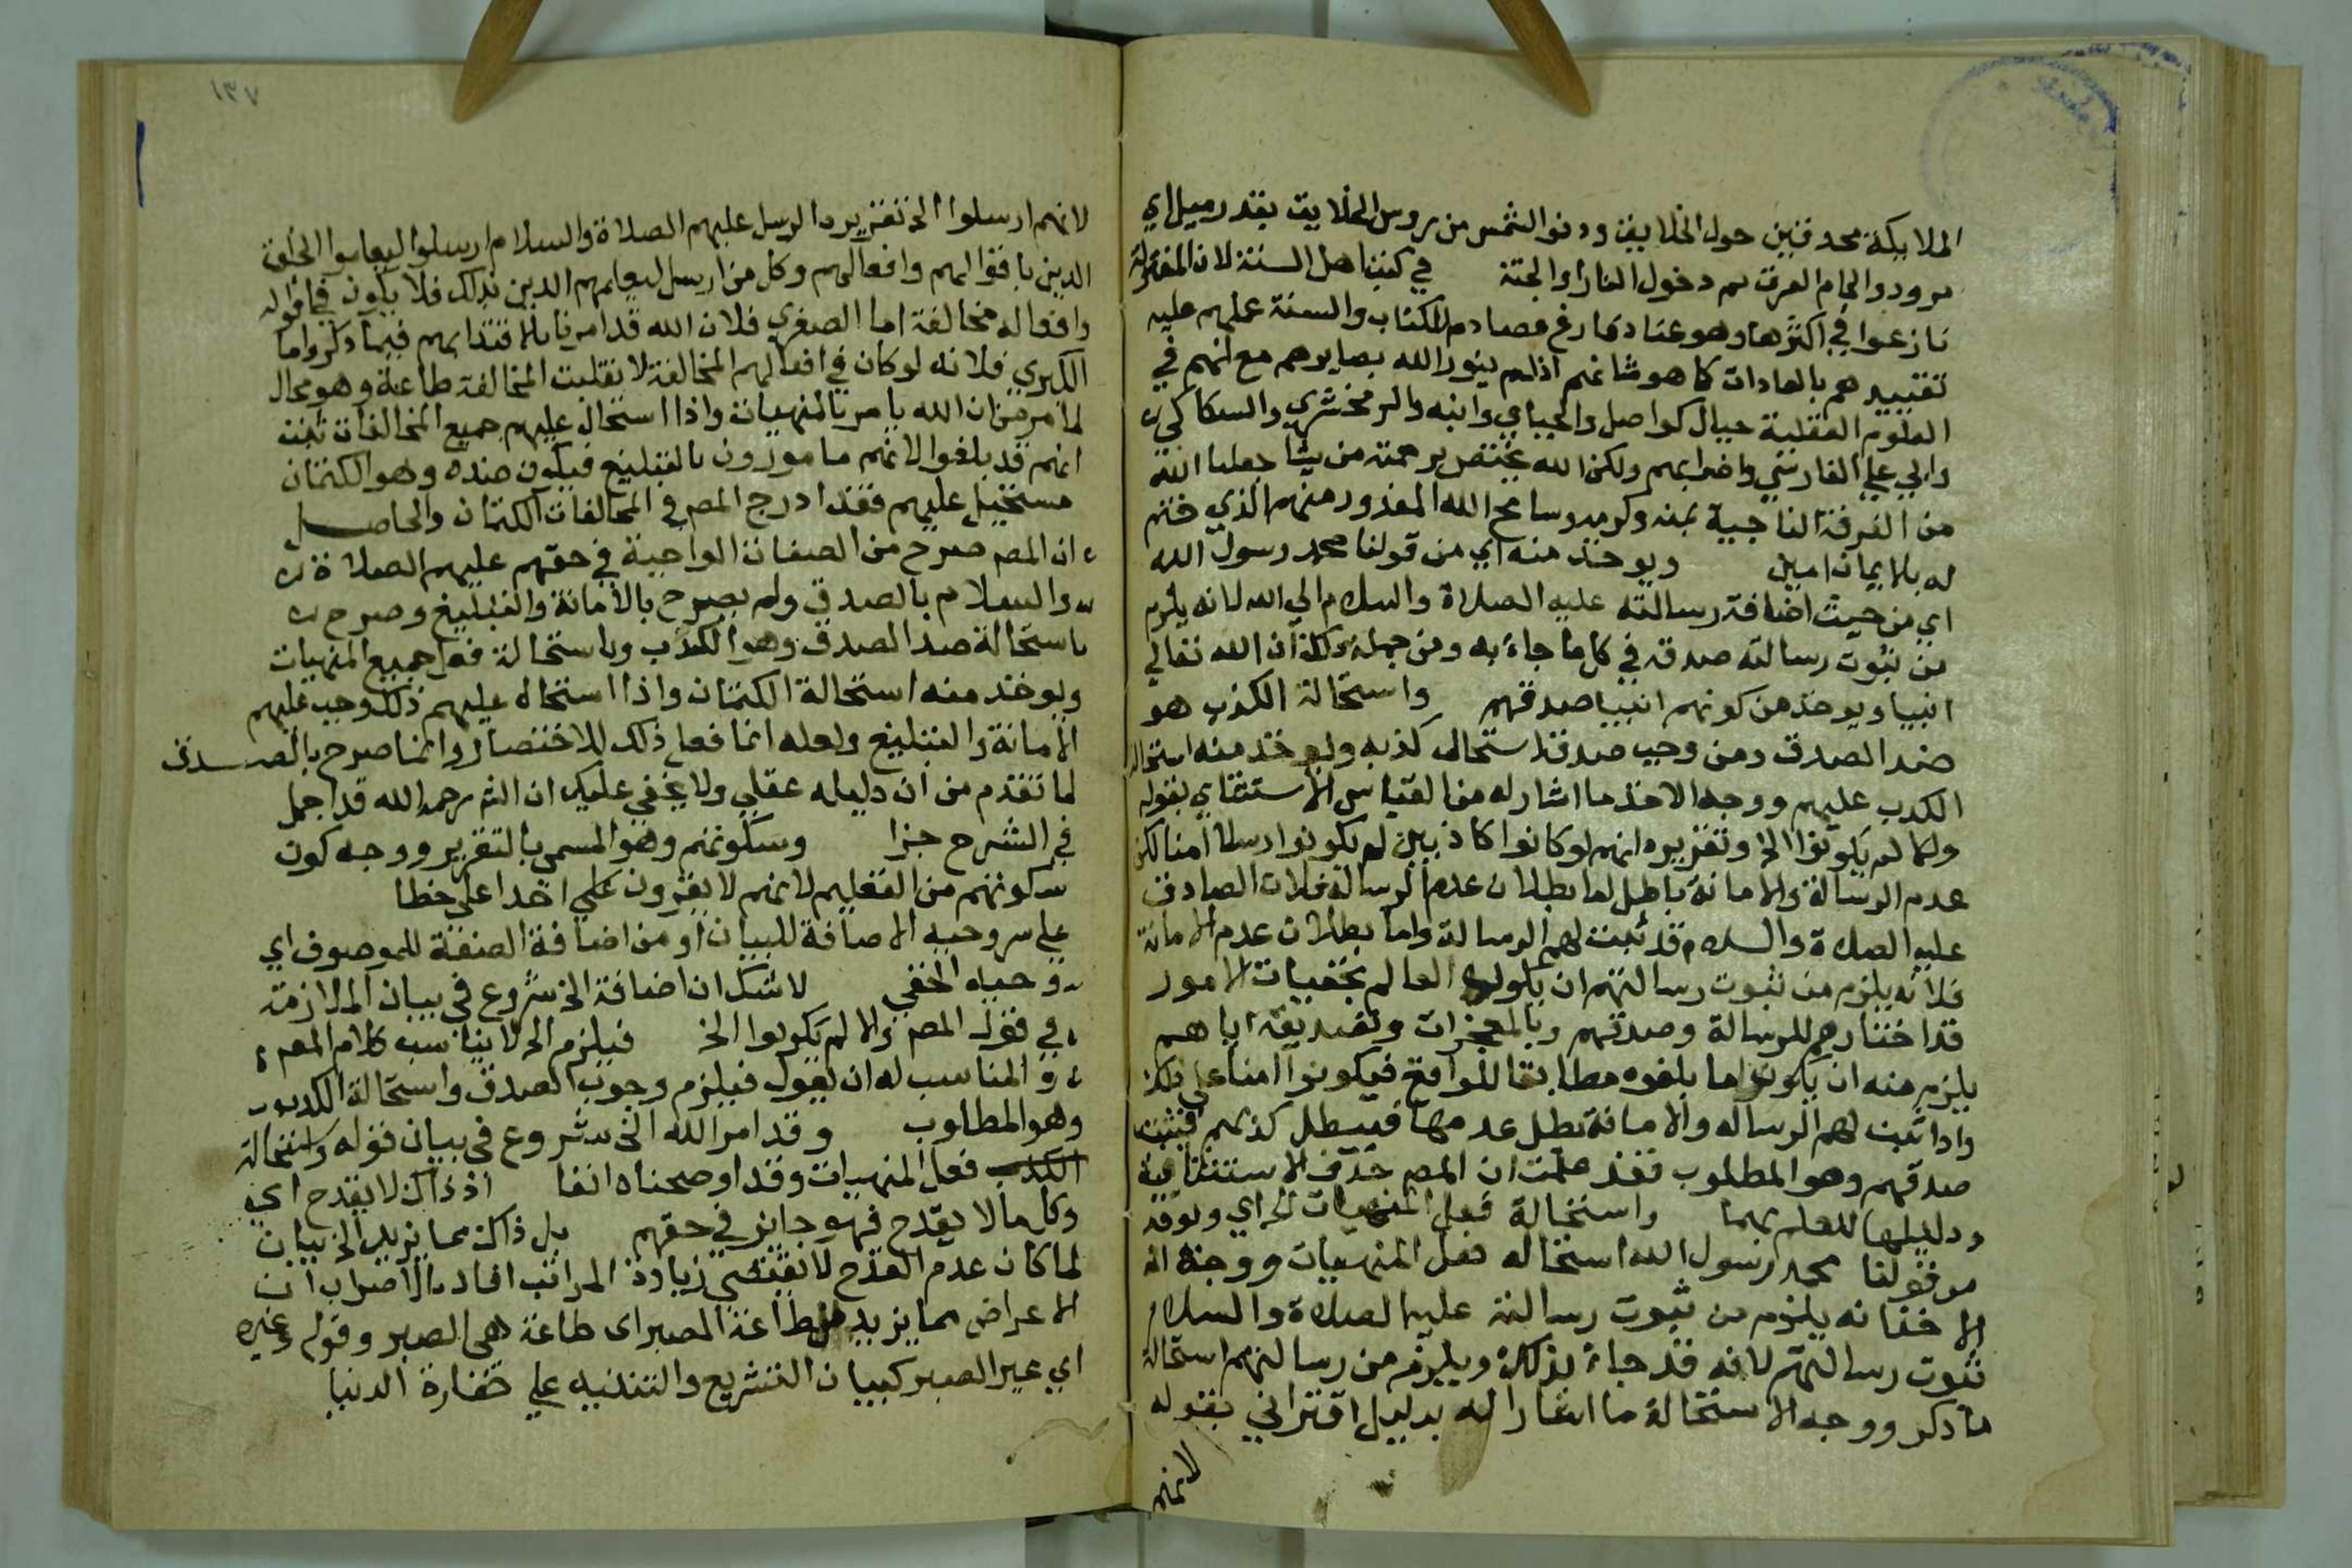 الملايكة محدقين حول الخلايق ودنو الشمس من روس الخلايق بقدر ميل اي
مرود والجام العرق ثم دخول النار او الجنة في كتب اهل السنة لان المعتزلة
نازعوا في اكثرها وهو عناد فارغ مصادم للكتاب والسنة عملهم عليه
تقييدهم بالعادات كما هو شانهم اذ لم ينور الله بصايرهم مع انهم في
العلوم العقلية جبال كواصل والجباي وابنه والزمخشري والسكاكي
وابي علي الفارسي واضرابهم ولكن الله يختص برحمته من يشا جعلنا الله
من الفرقة الناجية بمنه وكرمه وسامح الله المعذور منهم الذي ختم
له بالايمان امين ويوخذ منه اي من قولنا محمد رسول الله
اي من حيث اضافة رسالته عليه الصلاة والسلام الي الله لانه يلزم
من ثبوت رسالته صدقه في كل ما جاء به ومن جملة ذلك ان الله تعالي
انبيا ويوخذ من كونهم انبيا صدقهم واستحالة الكذب هو
ضد الصدق ومن وجب صدقه استحال كذبه ويوخذ منه استحالة
الكذب عليهم ووجه الاخذ ما اشار له من القياس الاستثناي بقوله
والا لم يكونوا الخ وتقريره انهم لو كانوا كاذبين لم يكونوا رسلا امنا لكن
عدم الرسالة والامانة باطل اما بطلان عدم الرسالة فلان الصادق
عليه الصلاة والسلام قد ثبت لهم الرسالة واما بطلان عدم الامانة
فلانه يلزم من ثبوت رسالتهم ان يكون العالم بخفيات الامور
قد اختارهم للرسالة وصدقهم وبالمعجزات وتصديقه اياهم
يلزم منه ان يكونوا ما بلغوه مطابقا للواقع فيكونوا امنا علي ذلك
واذا ثبت لهم الرسالة والامانة بطل عدمها فيبطل كذبهم فيثبت
صدقهم وهو المطلوب فقد علمت ان المص حذف الاستثنايية
ودليلها للعلم بهما واستحالة فعل المنهيات الخ اي ويوخذ
من قولنا محمد رسول الله استحالة فعل المنهيات ووجه
الاخذ انه يلزم من ثبوت رسالته عليه الصلاة والسلام
ثبوت رسالتهم لانه قد جاء بذلك ويلزم من رسالتهم استحالة
ما ذكر ووجه الاستحالة ما اشار اليه بدليل اقتراني بقوله
لانهم
١٣٧
لانهم ارسلوا الخ تقريره الرسل عليهم الصلاة والسلام ارسلوا ليعلموا الخلق
الدين باقوالهم وافعالهم وكل من ارسل ليعلمهم الدين بذلك فلا يكون في اقواله
وافعاله مخالفة اما الصغري فلان الله قد امرنا بالاقتدا بهم فيما ذكر واما
الكبري فلانه لو كان في افعالهم المخالفة لانقلبت المخالفة طاعة وهو محال
لما مر من ان الله يامر بالمنهيات واذا استحال عليهم جميع المخالفات ثبت
انهم قد بلغوا لانهم مامورون بالتبليغ فيكون ضده وهو الكتمان
مستحيل عليهم فقد ادرج المص في المخالفات الكتمان والحاصل
ان المص صرح من الصفات الواجبة في حقهم عليهم الصلاة
والسلام بالصدق ولم يصرح بالامانة والتبليغ وصرح
باستحالة ضد الصدق وهو الكذب وباستحالة فعل جميع المنهيات
ويوخذ منه استحالة الكتمان واذا استحال عليهم ذلك وجب عليهم
الامانة والتبليغ ولعله انما فعل ذلك للاختصار وانما صرح بالصدق
لما تقدم من ان دليله عقلي ولا يخفي عليك ان الش رحمه الله قد اجمل
في الشرح جزا وسكوتهم وهو المسمي بالتقرير ووجه كون
سكوتهم من التعليم لانهم لا يقرون علي احدا علي خطا
علي سر وحيه الاضافة للبيان او من اضافة الصفة للموصوف اي
وحيه الخفي لا شك ان اضافة الخ شروع في بيان الملازمة
في قول المص والا لم يكونوا الخ فيلزم الخ لا يناسب كلام المص
والمناسب له ان يقول فيلزم وجوب الصدق واستحالة الكذب
وهو المطلوب وقد امر الله الخ شروع في بيان قوله واستحالة
الكذب فعل المنهيات وقد اوضحناه انفا اذ ذاك لا يقدح اي
وكل ما لا يقدح فهو جايز في حقهم بل ذاك مما يزيد الخ بيان
لما كان عدم القدح لا يقتضي زيادة المراتب افاد بالاضراب ان
الاعراض مما يزيد طاعة الصبر اي طاعة هي الصبر وقوله وغيره
اي غير الصبر كبيان التشريع والتنبيه علي حقارة الدنيا